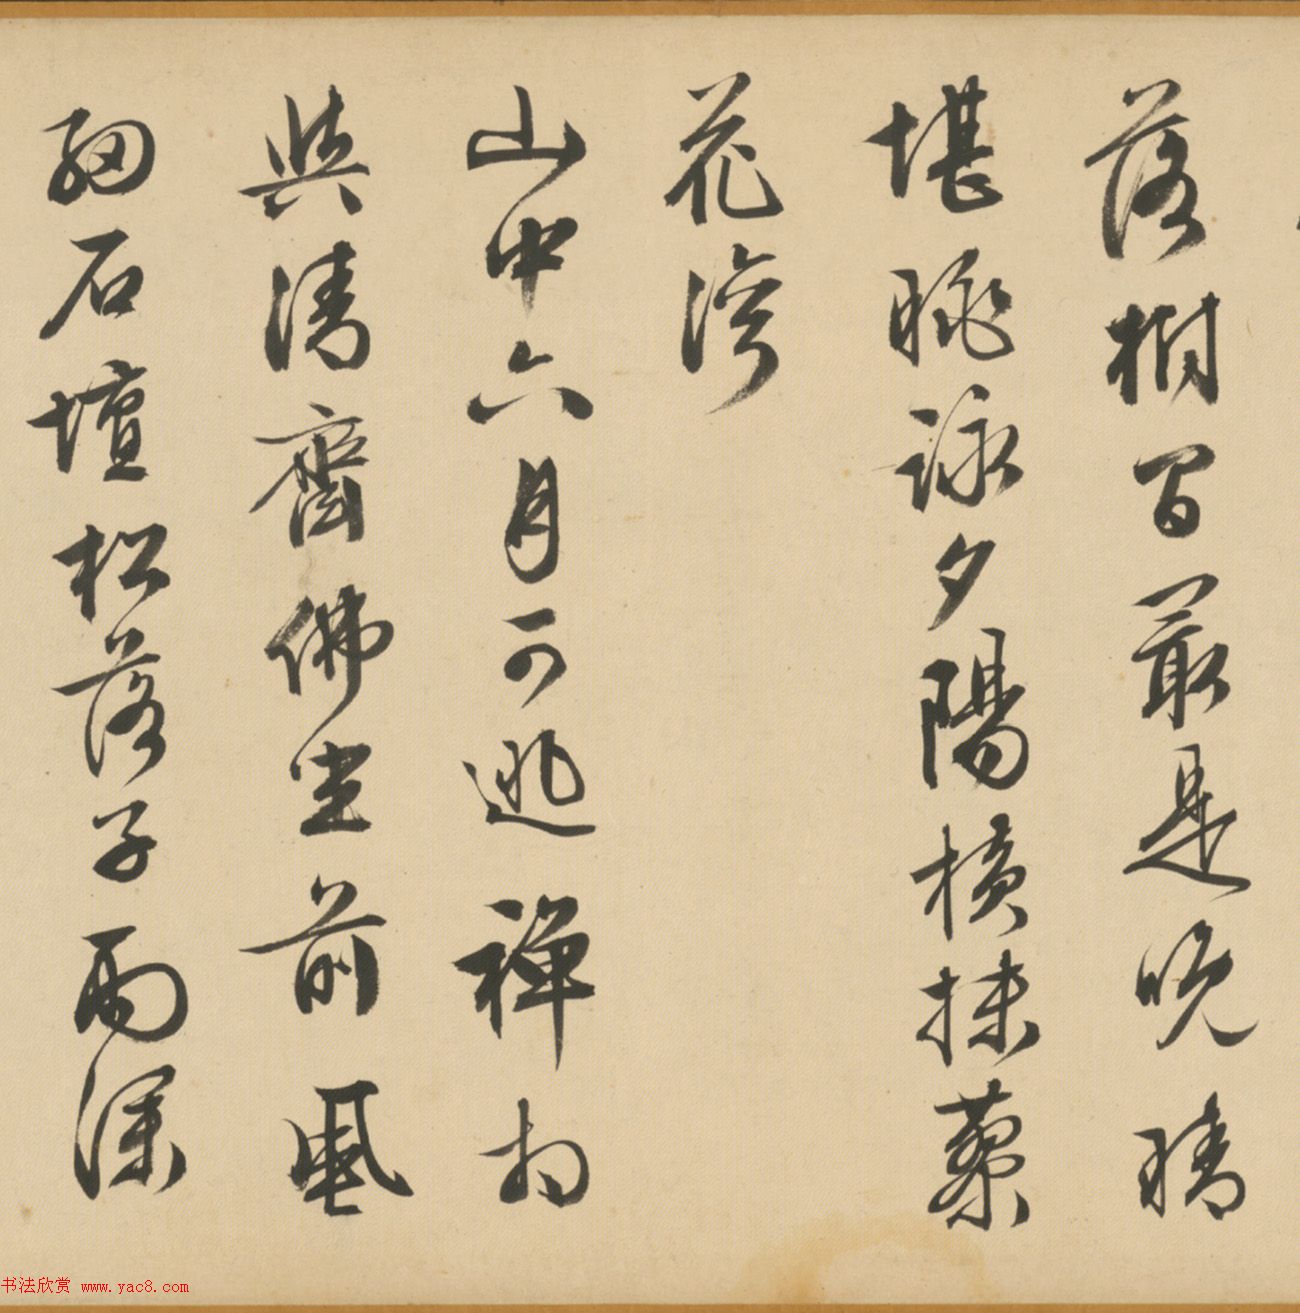 落樹間最是晚晴
堪眺詠夕陽橫抹蓼
花灣
山中六月可逃禪相
與清齋佛坐前風
細石壇松落子雨深
书法欣赏 www.yac8.com